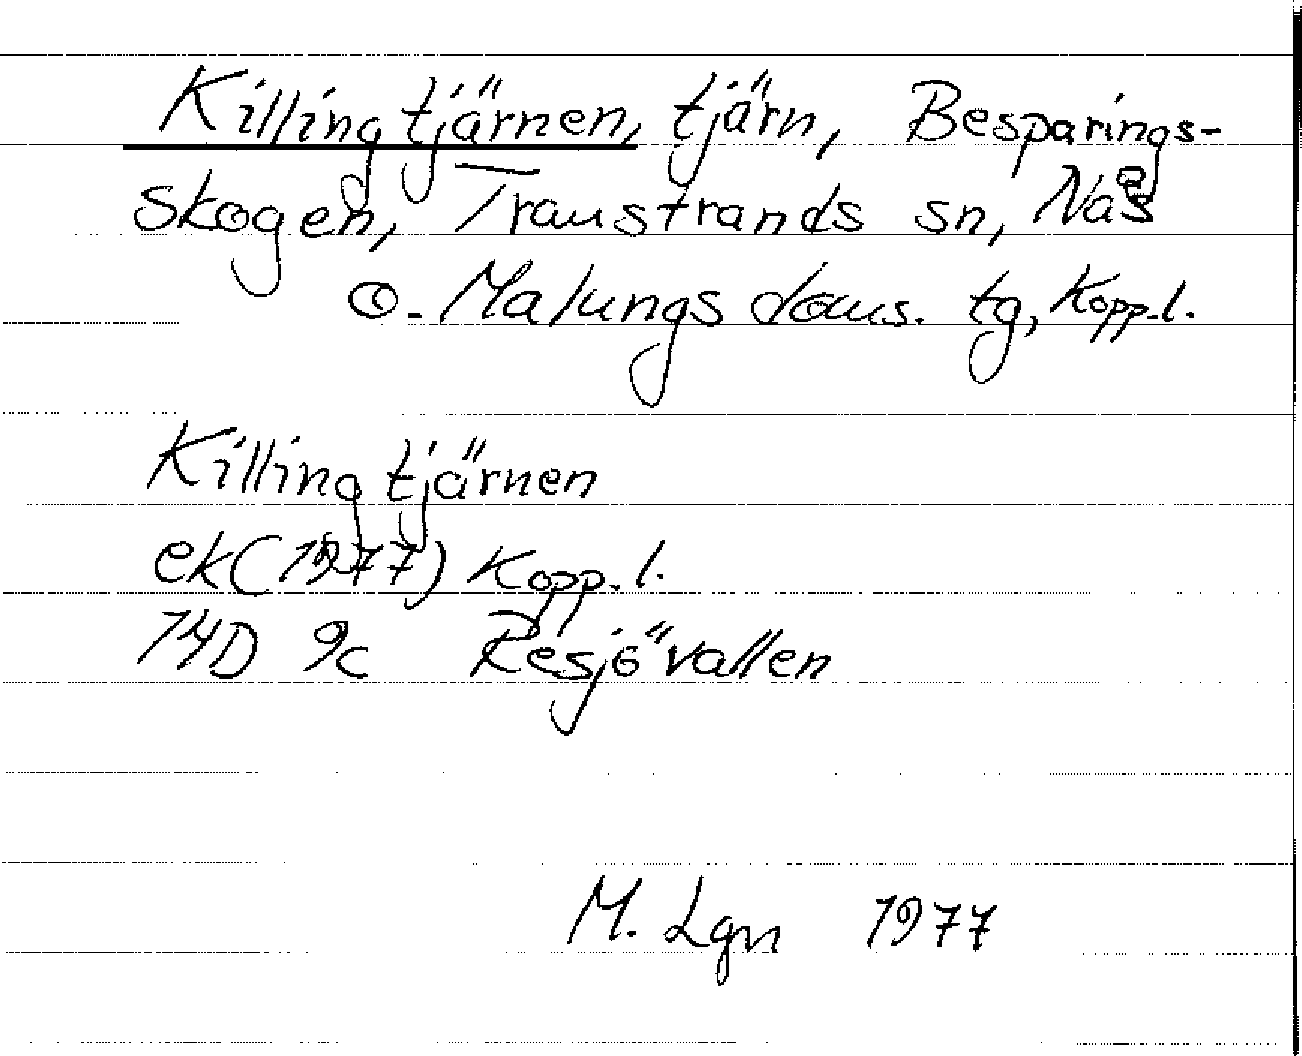 Killingtjärnen, tjärn, Besparings-
skogen, Transtrands sn, Nås
o. Malungs doms. tg, Kopp. l.
Killingtjärnen
ek (1977) Kopp. l.
14D 9c Resjövallen
M. Lgn 1977